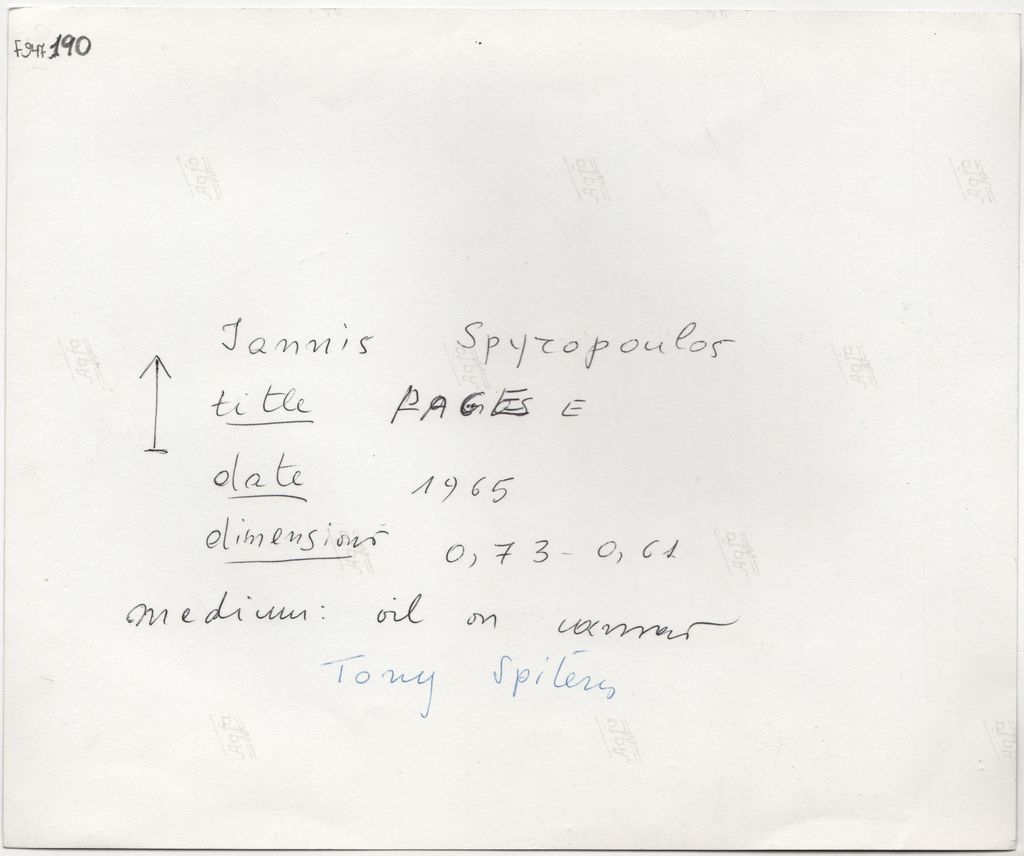 F947 190
Iannis Spyropoulos
title PAGES E
date 1965
dimensions 0,73 - 0,61
medium: oil on canvas
Tony Spitéris
Agfa
Agfa
Agfa
Agfa
Agfa
Agfa
Agfa
Agfa
Agfa
Agfa
Agfa